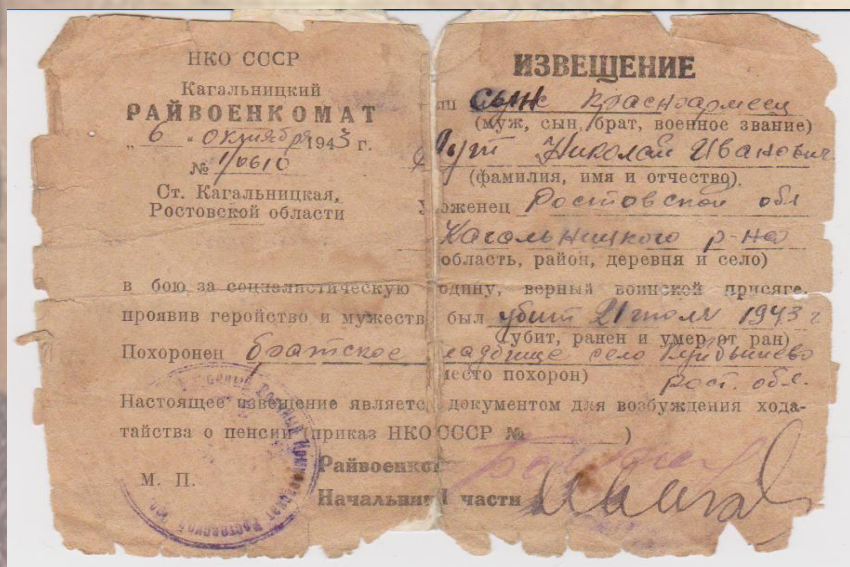 НКО СССР
Кагальницкий
РАЙВОЕНКОМАТ
„ 6 " октября 1943 г.
№ 1/0610
Ст. Кагальницкая,
Ростовской области
ИЗВЕЩЕНИЕ
сын Красноармеец
(муж, сын, брат, военное звание)
Николай Иванович
(фамилия, имя и отчество)
Ростовской обл
Кагальницкого р-на
область, район, деревня и село)
в бою за социалистическую одину, верный воинской присяге,
проявив геройство и мужеств был убит 21 июля 1943 г
(убит, ранен и умер от ран)
Похоронен братское кладбище село Куйбышево
место похорон) Рост. обл.
Настоящее извещение являетс документом для возбуждения хода-
тайства о пенсии (приказ НКО СССР № )
Райвоенко
М. П.
Начальни части